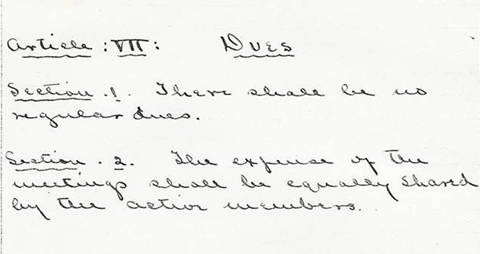 Article : VII : DUES
Section . 1 . There shall be no
regular dues.
Section . 2 . The expense of the
meetings shall be equally shared
by the active members.